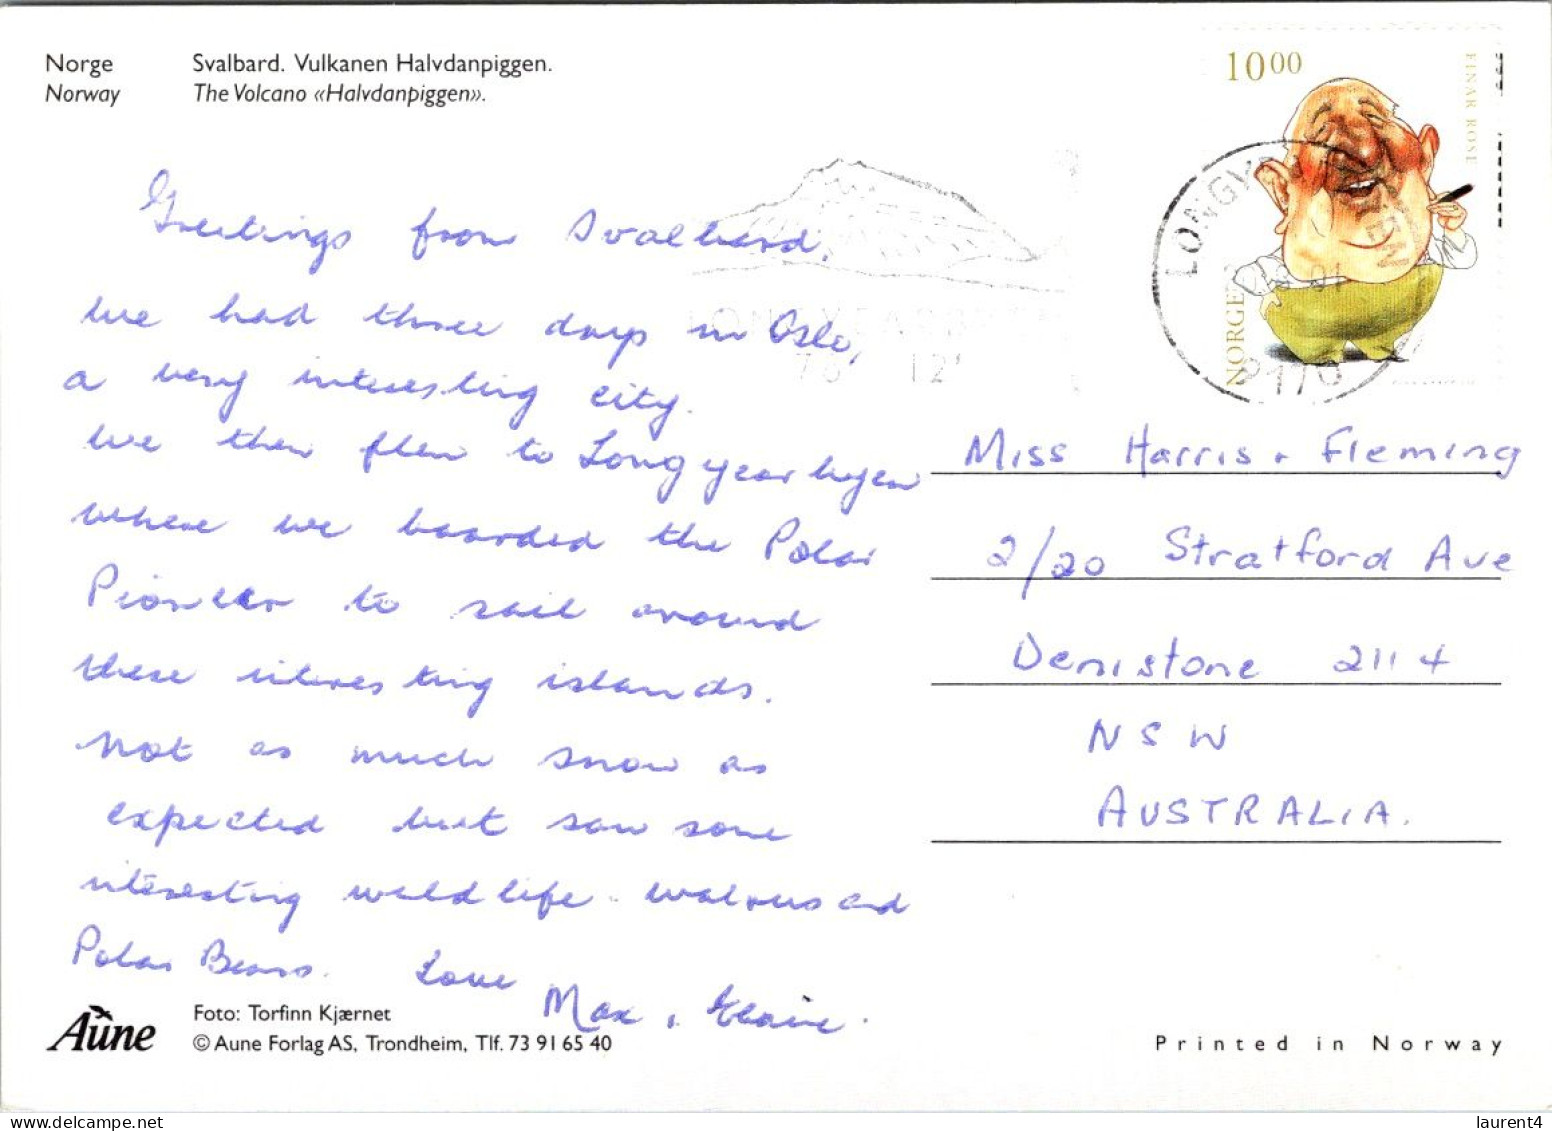 Norge Svalbard. Vulkanen Halvdanpiggen.
Norway The Volcano «Halvdanpiggen».
10 00
EINAR ROSE
NORGE
LONGY
01
9170
78 12'
Greetings from Svalbard.
We had three days in Oslo,
a very interesting city.
We then flew to Longyearbyen
where we boarded the Polar
Pioneer to sail around
these interesting islands.
Not as much snow as
expected but saw some
interesting wild life - walrus and
Polar Bears. Love
Max & Elaine.
Miss Harris & Fleming
2/20 Stratford Ave
Denistone 2114
NSW
AUSTRALIA.
Aune
Foto: Torfinn Kjærnet
© Aune Forlag AS, Trondheim, Tlf. 73 91 65 40
Printed in Norway
laurent4